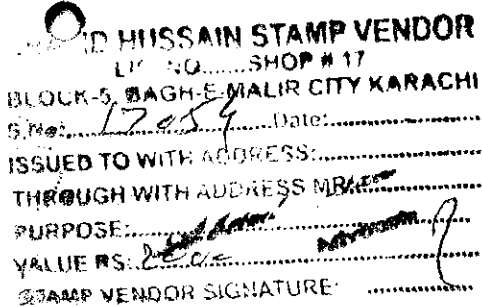 HUSSAIN STAMP VENDOR
LIC NO.......SHOP # 17
BLOCK-5, BAGH-E-MALIR CITY KARACHI
S.No:..............Date:..............
ISSUED TO WITH ADDRESS:..............
THROUGH WITH ADDRESS MR
PURPOSE:..............
VALUE RS:
STAMP VENDOR SIGNATURE:..............